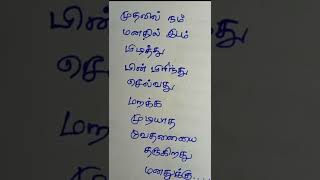 முதலில் நம்
மனதில் இடம்
பிடித்து
பின் பிரிந்து
செல்வது
மறக்க
முடியாத
வேதனையை
தருகிறது
மனதுக்கு....